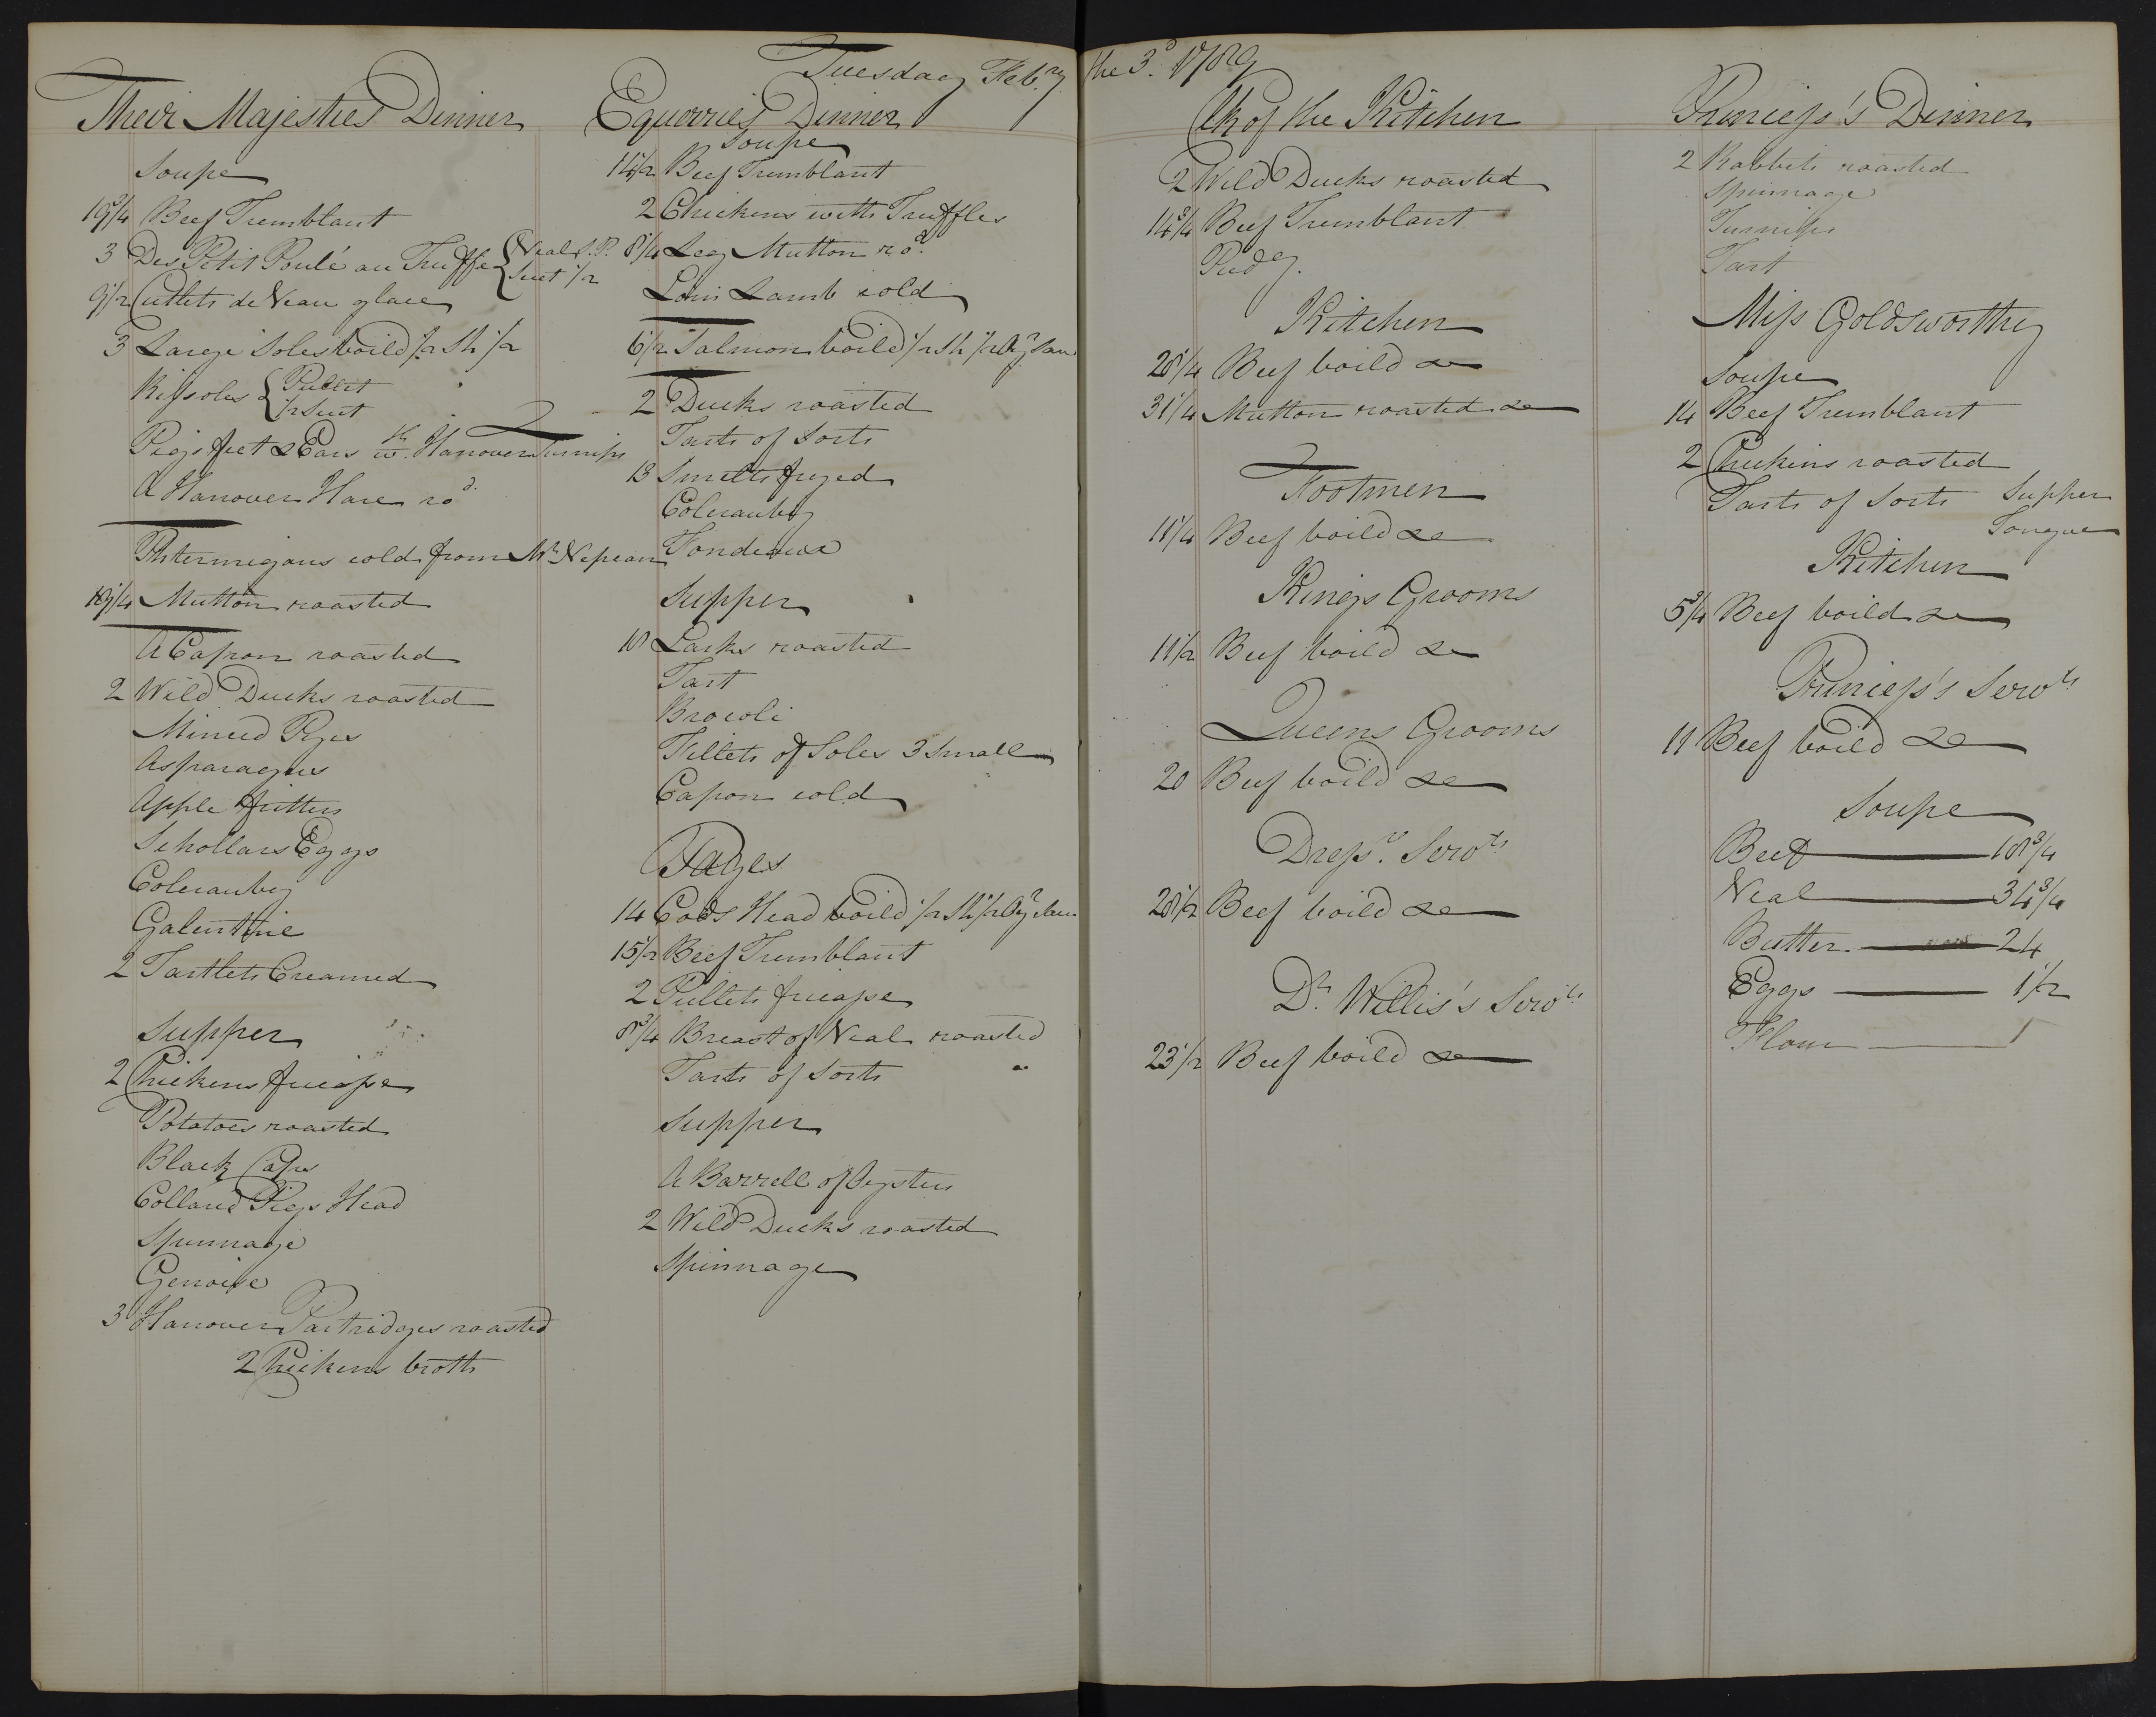 Tuesday Feb.ry the 3.d 1789
Their Majesties Dinner
Soupe
19 3/4 Beef Tremblant
3 Des Petit Poulé au Truffe { Veal P.P.
Suet 1/2
9 1/2 Cutlets de Veau glace
3 Large Soles boild 1/2 Sh 1/2
Rissoles { Pullet
1/2 Suet
Pigs feet & Ears wth. Hanover Turnips
A Hanover Hare ro.d
Phtermigans cold from Mr. Nepean
19 1/4 Mutton roasted
A Capon roasted
2 Wild Ducks roasted
Minced Pyes
Asparagus
Apple fritters
Schollars Eggs
Coleraubg
Galentine
2 Tartlets Creamed
Supper
2 Chickens fricasse
Potatoes roasted
Black Caps
Collard Pigs Head
Spinnage
Genoise
3 Hanover Partridges roasted
2 Chickens broth
Equerries Dinner
Soupe
14 1/2 Beef Tremblant
2 Chickens with Truffles
8 1/4 Leg Mutton ro.d
Loin Lamb cold
6 1/2 Salmon boild 1/2 Sh 1/2 Oyr Sau
2 Ducks roasted
Tarts of Sorts
18 Smelts fryed
Coleraubg
Fondeaux
Supper
18 Larks roasted
Tart
Brocoli
Fillets of Soles 3 Small
Capon cold
Pages
14 Cods Head boild 1/2 Sh 1/2 Oyr Sau
15 1/2 Beef Tremblant
2 Pullets fricasse
8 3/4 Breast of Veal roasted
Tarts of Sorts
Supper
A Barrell of Oysters
2 Wild Ducks roasted
Spinnage
Clk of the Kitchen
2 Wild Ducks roasted
14 3/4 Beef Tremblant
Pudg.
Kitchen
28 1/4 Beef boild &c
31 1/4 Mutton roasted &c
Footmen
11 1/4 Beef boild &c
Kings Grooms
11 1/2 Beef boild &c
Queens Grooms
20 Beef boild &c
Dress.rs Servts
28 1/2 Beef boild &c
Dr. Willis's Servts
23 1/2 Beef boild &c
Princess's Dinner
2 Rabbits roasted
Spinnage
Turnips
Tart
Miss Goldsworthy
Soupe
14 Beef Tremblant
2 Chickens roasted
Tarts of Sorts Supper
Tongue
Kitchen
5 3/4 Beef boild &c
Princess's Servts
11 Beef boild &c
Soupe
Beef 18 3/4
Veal 34 3/4
Butter 24
Eggs 1 1/2
Flour 1